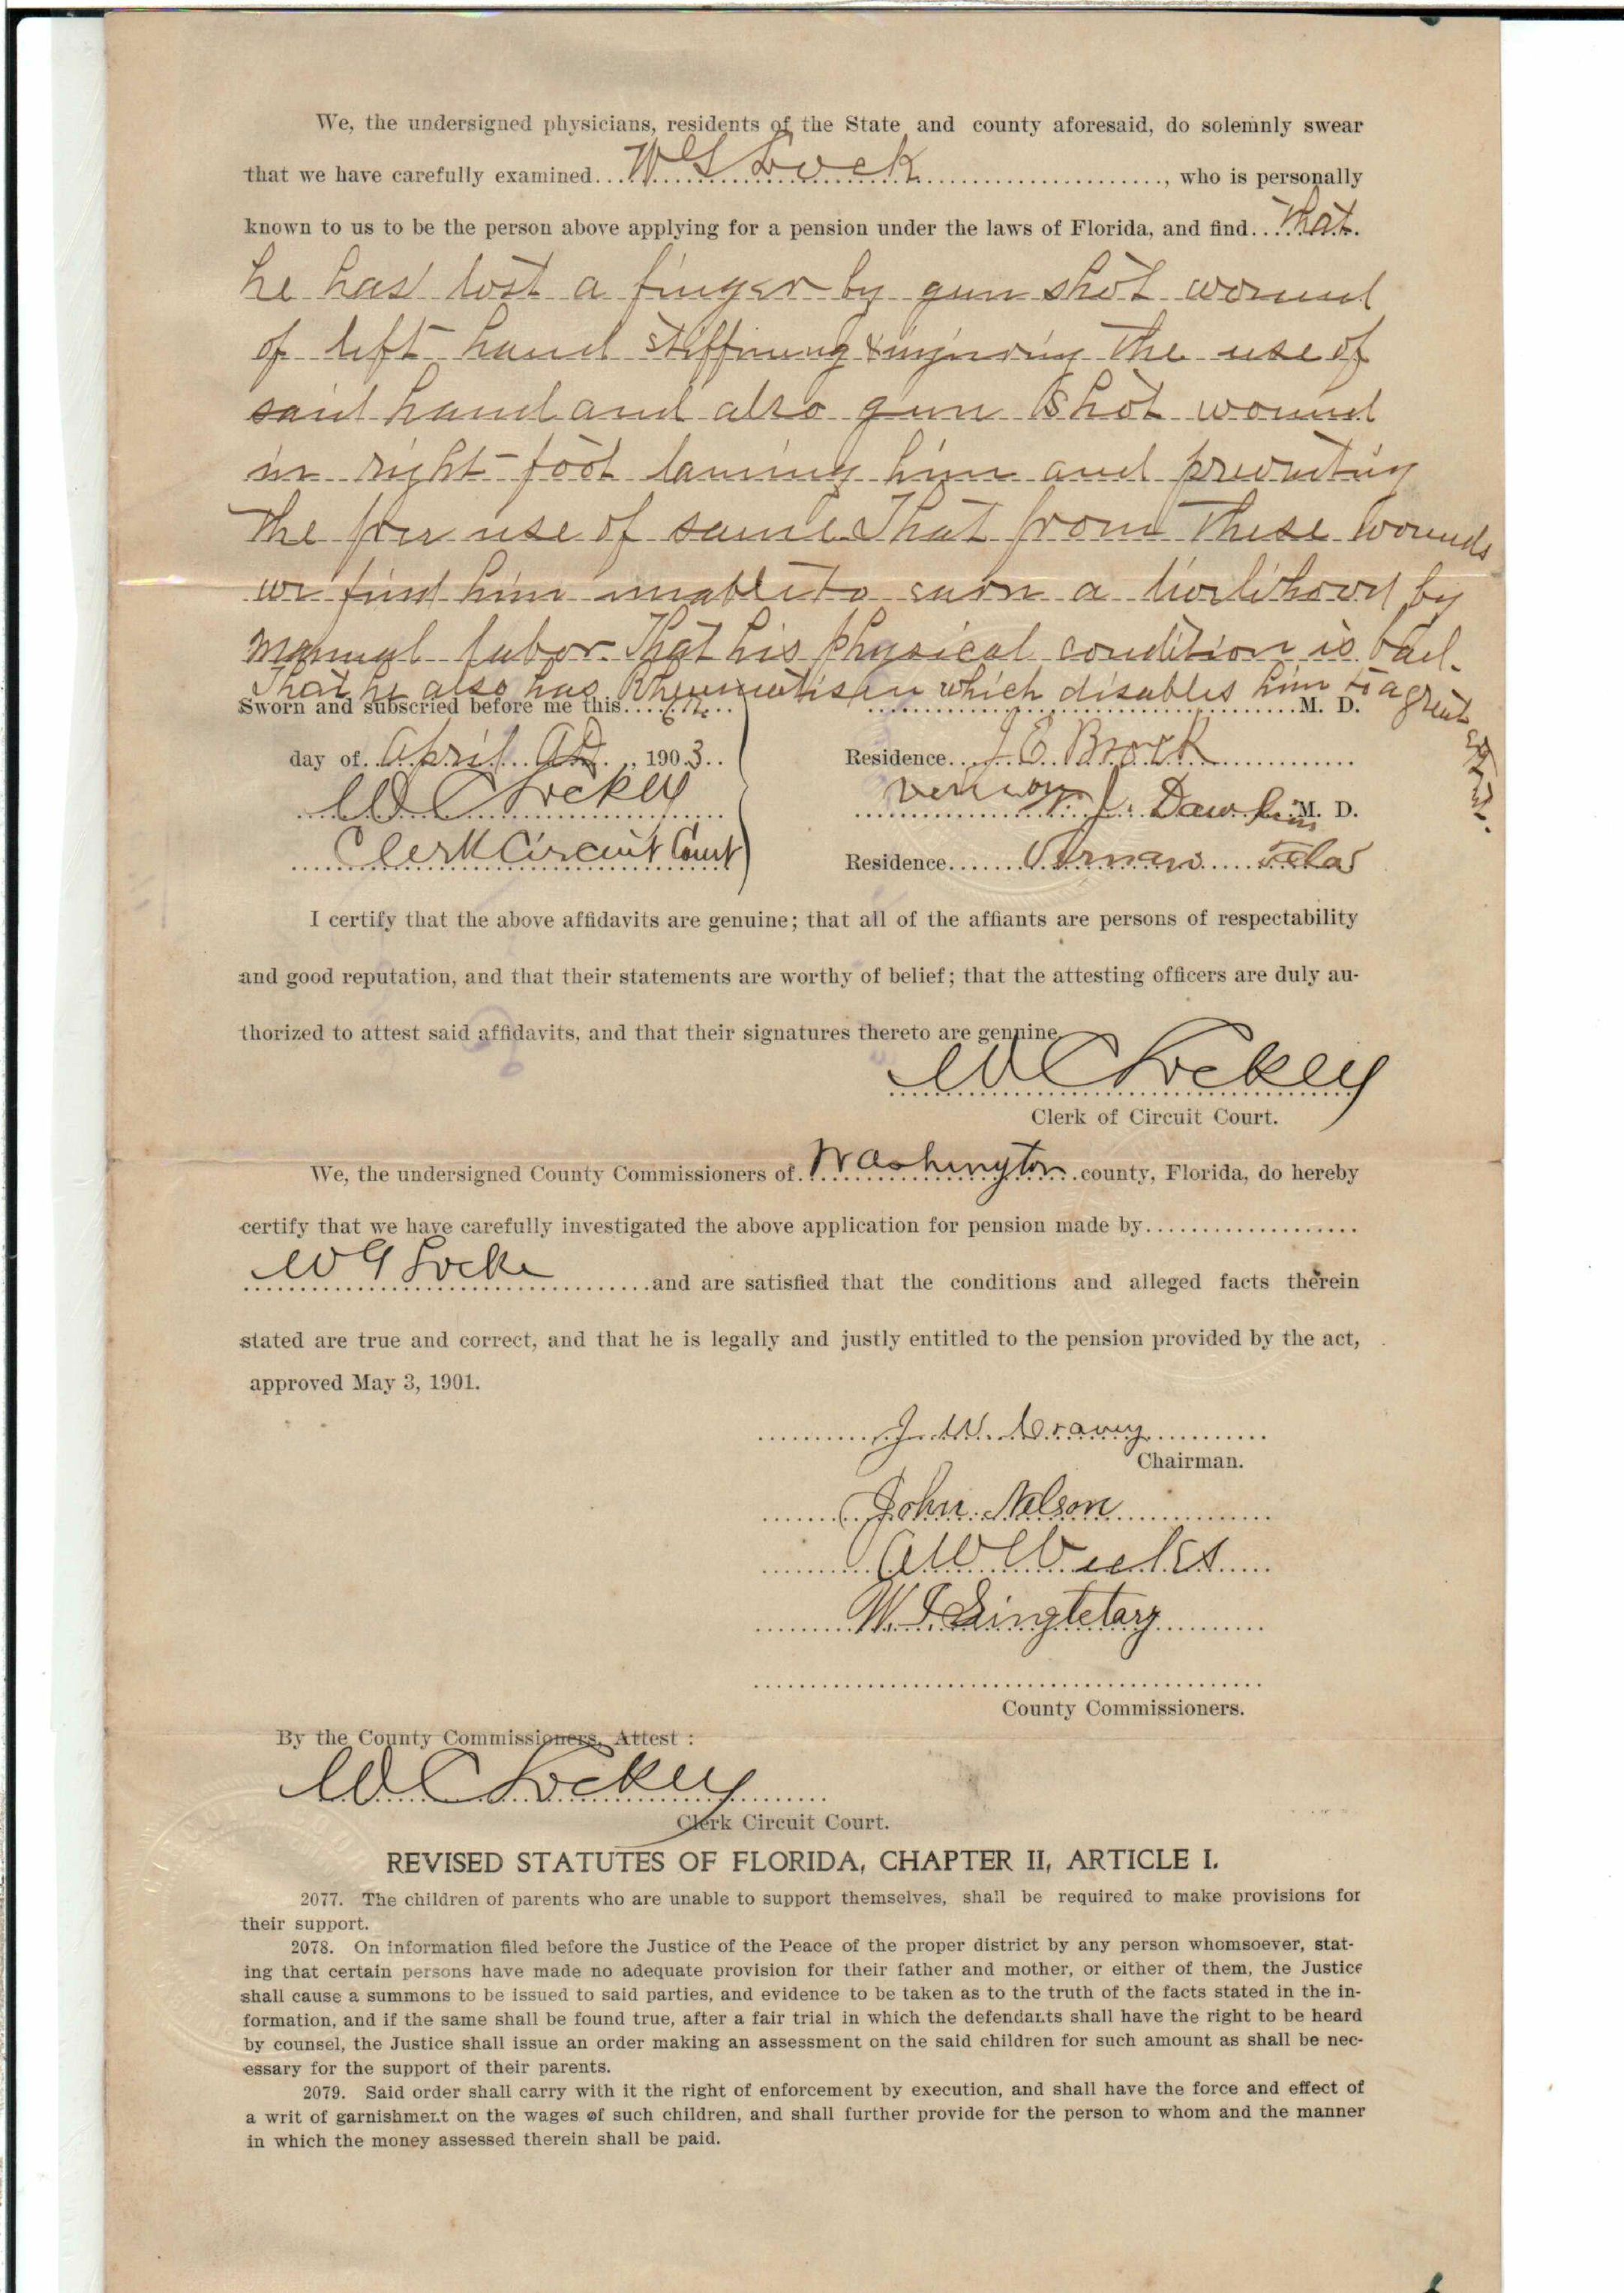 We, the undersigned physicians, residents of the State and county aforesaid, do solemnly swear
that we have carefully examined W G Lock, who is personally
known to us to be the person above applying for a pension under the laws of Florida, and find That
he has lost a finger by gun shot wound
of left hand stiffining & injuring the use of
said hand and also gun shot wound
in right foot laming him and preventing
the free use of same. That from these wounds
we find him unable to earn a livelihood by
manual labor. That his physical condition is bad.
That he also has Rheumatism which disables him to a great
extent.
Sworn and subscried before me this 6th M. D.
day of April AD, 1903
Residence J E Brock
W C Lockey
Vernon
J. Dawkins M. D.
Clerk Circuit Court
Residence Vernon Fla
I certify that the above affidavits are genuine; that all of the affiants are persons of respectability
and good reputation, and that their statements are worthy of belief; that the attesting officers are duly au-
thorized to attest said affidavits, and that their signatures thereto are genuine
W C Lockey
Clerk of Circuit Court.
We, the undersigned County Commissioners of Washington county, Florida, do hereby
certify that we have carefully investigated the above application for pension made by
W G Locke and are satisfied that the conditions and alleged facts therein
stated are true and correct, and that he is legally and justly entitled to the pension provided by the act,
approved May 3, 1901.
J. W. Cravey
Chairman.
John Nelson
A W Weeks
W. J. Singletary
County Commissioners.
By the County Commissioners, Attest :
W C Lockey
Clerk Circuit Court.
REVISED STATUTES OF FLORIDA, CHAPTER II, ARTICLE I.
2077. The children of parents who are unable to support themselves, shall be required to make provisions for
their support.
2078. On information filed before the Justice of the Peace of the proper district by any person whomsoever, stat-
ing that certain persons have made no adequate provision for their father and mother, or either of them, the Justice
shall cause a summons to be issued to said parties, and evidence to be taken as to the truth of the facts stated in the in-
formation, and if the same shall be found true, after a fair trial in which the defendants shall have the right to be heard
by counsel, the Justice shall issue an order making an assessment on the said children for such amount as shall be nec-
essary for the support of their parents.
2079. Said order shall carry with it the right of enforcement by execution, and shall have the force and effect of
a writ of garnishment on the wages of such children, and shall further provide for the person to whom and the manner
in which the money assessed therein shall be paid.